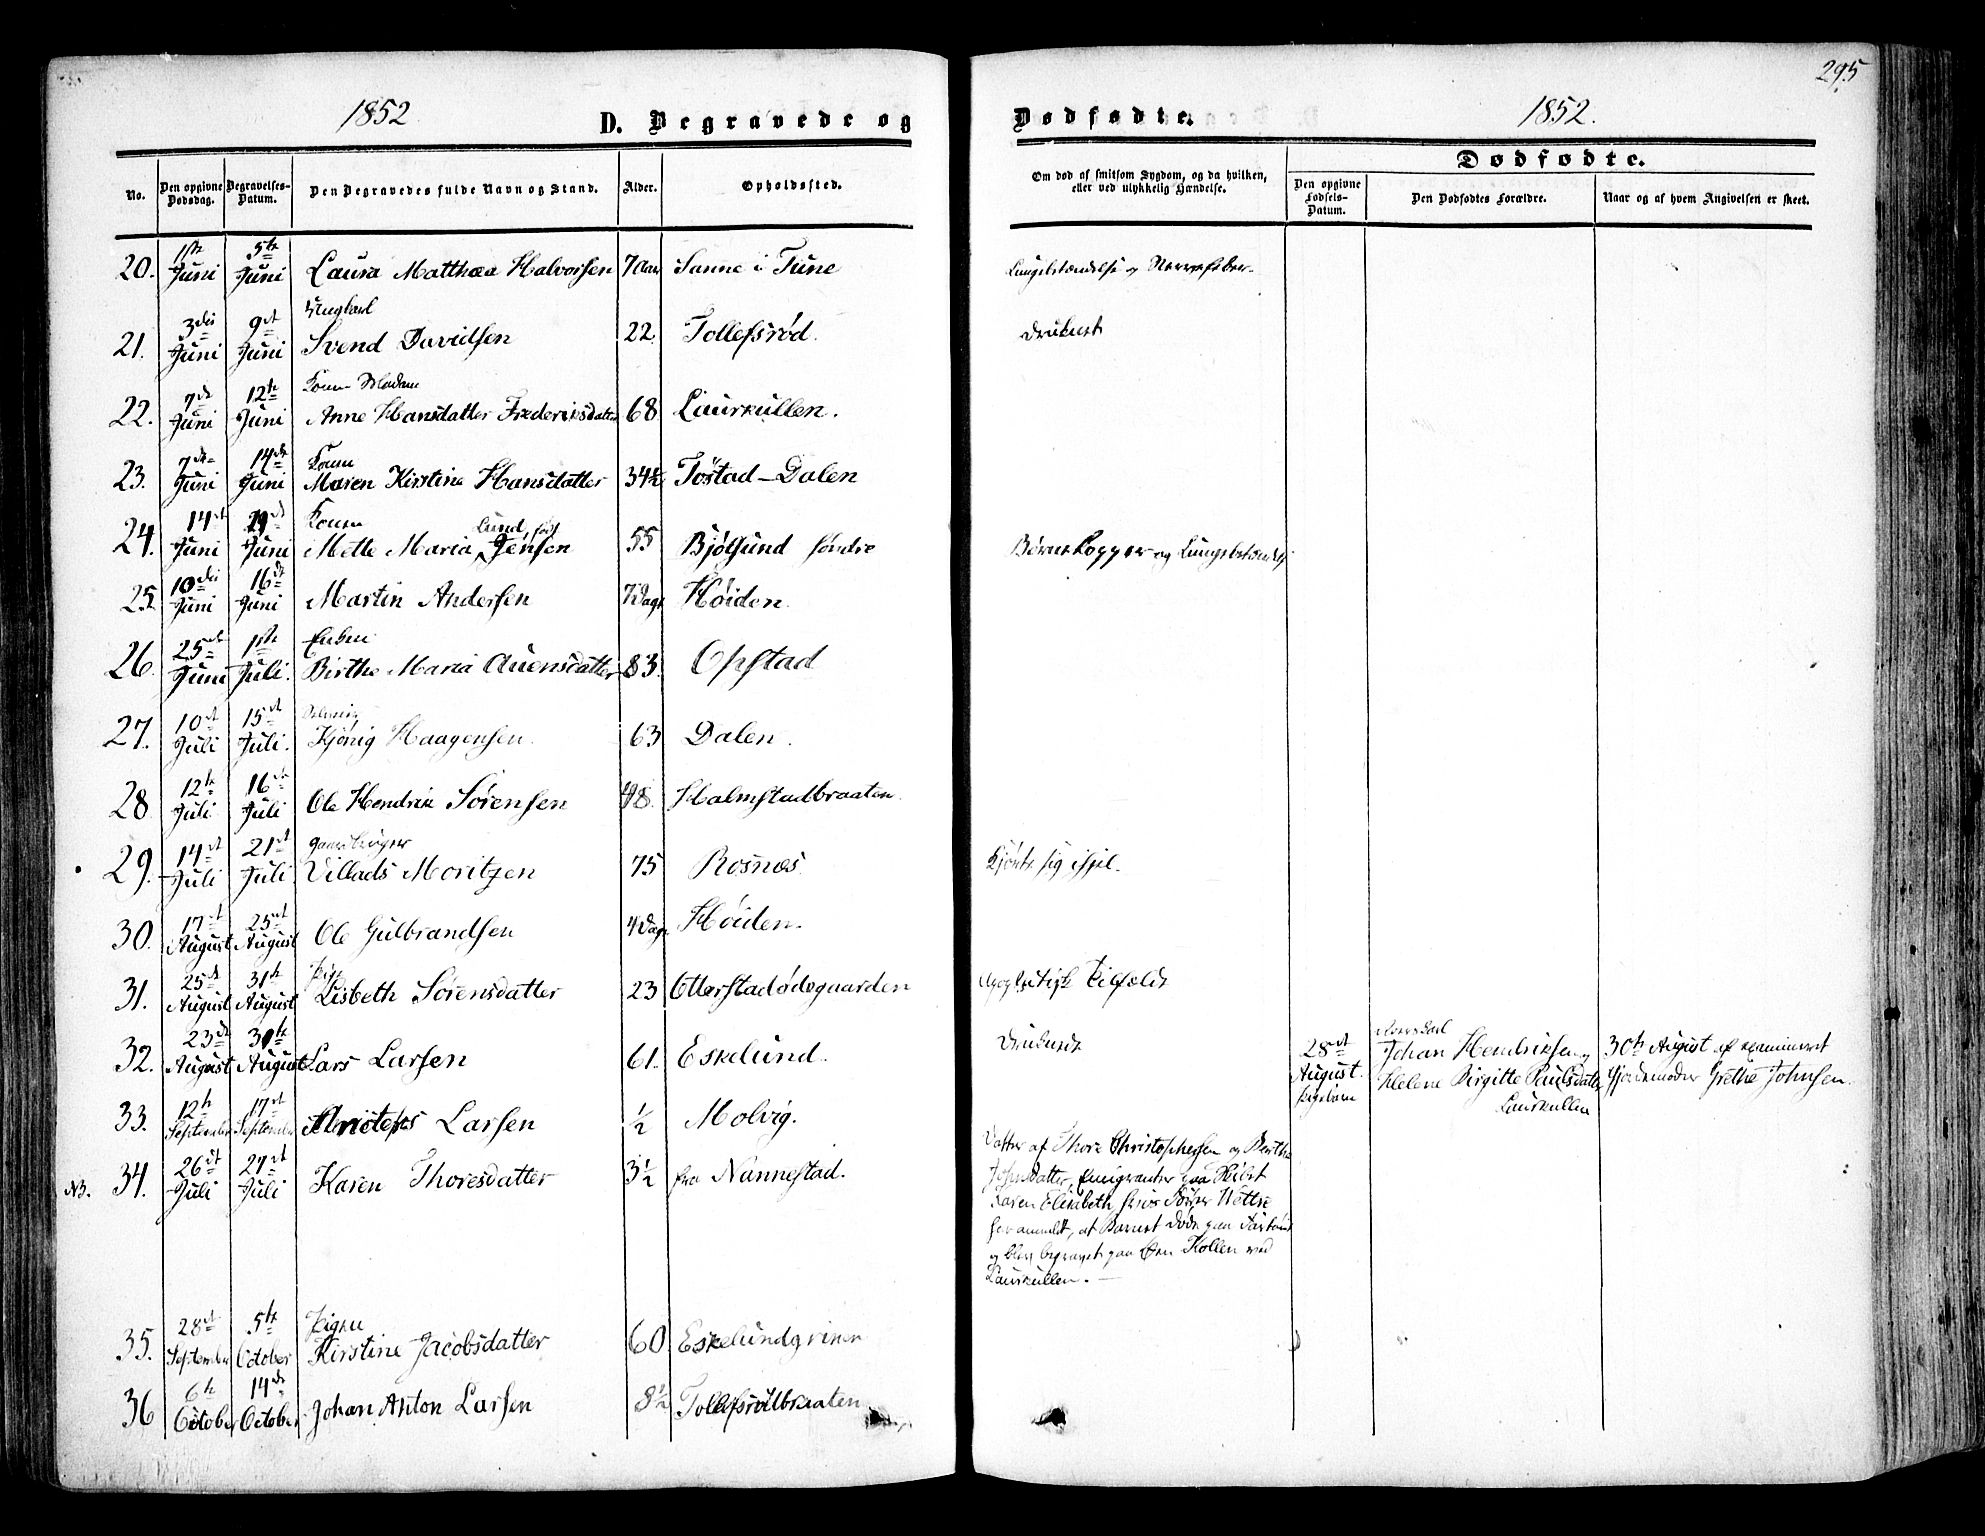 295
1852
D. Begravede og
Dødfødte.
1852.
No.
Den opgivne Dødsdag.
Begravelses-Datum.
Den Begravedes fulde Navn og Stand.
Alder.
Opholdssted.
Om død af smitsom Sygdom, og da hvilken,
eller ved ulykkelig Hændelse.
Dødfødte.
Den opgivne Fødsels-Datum.
Den Dødfødtes Forældre.
Naar og af hvem Angivelsen er skeet.
20. 1ste Juni 5te Juni Laura Matthea Halvorsen 7 Aar Sanne i Tune
Ungkarl
21. 3die Juni 9de Juni Svend Davidsen 22 Tollefsrød. druknet
22. 7de Juni 12te Juni Anne Hansdatter Frederiksdatter 68 Laurkullen.
Kone
23. 7de Juni 14de Juni Maren Kirstine Hansdatter 34½ Tøstad-Dalen
Kone
Lund født
24. 14de Juni Juni Mette Maria Jensen 55 Bjølsund søndre Børnekopper og Lungebetændelse
25 10de Juni 16de Juni Martin Andersen 7 Dage Høiden.
Enken
26 25de Juni 1ste Juli. Birthe Maria Auensdatter 83. Opstad
27. 10de Juli 15de Juli. Kjønig Haagensen. 63 Dalen.
28 12te Juli 16de Juli Ole Hendrik Sørensen 48. Halmstadbraaten.
Gaardbruger
29. 14de Juli 21de Juli Villads Moritzen 75 Rosnæs
30. 17de August 25de August Ole Gulbrandsen 4 Dage Høiden.
Pige
31. 25de August 31te August Lisbeth Sørensdatter 23 Otterstadødegaarden Apoplektisk Tilfælde
32. 23de August 30te August Lars Larsen 61. Eskelund. Druknede
28de August Pigebarn
Johan Hendriksen og
Helene Birgitte Paulsdatter
Laurkullen
30te August af examineret
Gjordemoder Grethe Johnsen.
33. 12te September 17de September Larsen ½ Molvig.
NB. 34. 26de Juli 27de Juli Karen Thoresdatter 3½ fra Nannestad.
Datter af Thore Christophersen og Berthe
Johnsdatter, Emigranter paa Skibet
Karen Elisabeth,
har anmeldt, at Barnet døde paa
og blev begravet paa Øen Kollen ved
Laurkullen.
Pigen
35. 28de September 5te October Kirstine Jacobsdatter 60 Eskelundgrinen
36 6te October 14de October Johan Anton Larsen 8½ Tollefsrødbraaten